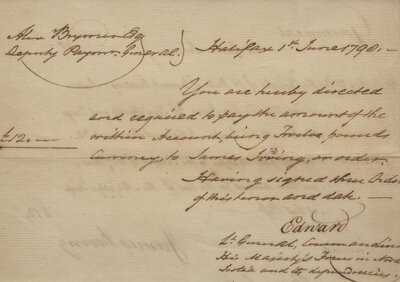 Alex Brymer Esq
Deputy Paymr. General.
Halifax 1st June 1798.
You are hereby directed
and required to pay the amount of the
within Account, being Twelve pounds
£12
Currency, to James Irving, or order.
Having signed three Orders
of this tenor and date
Edward
Lt. General, Commanding
His Majesty's Forces in Nova
Scotia and its dependencies.